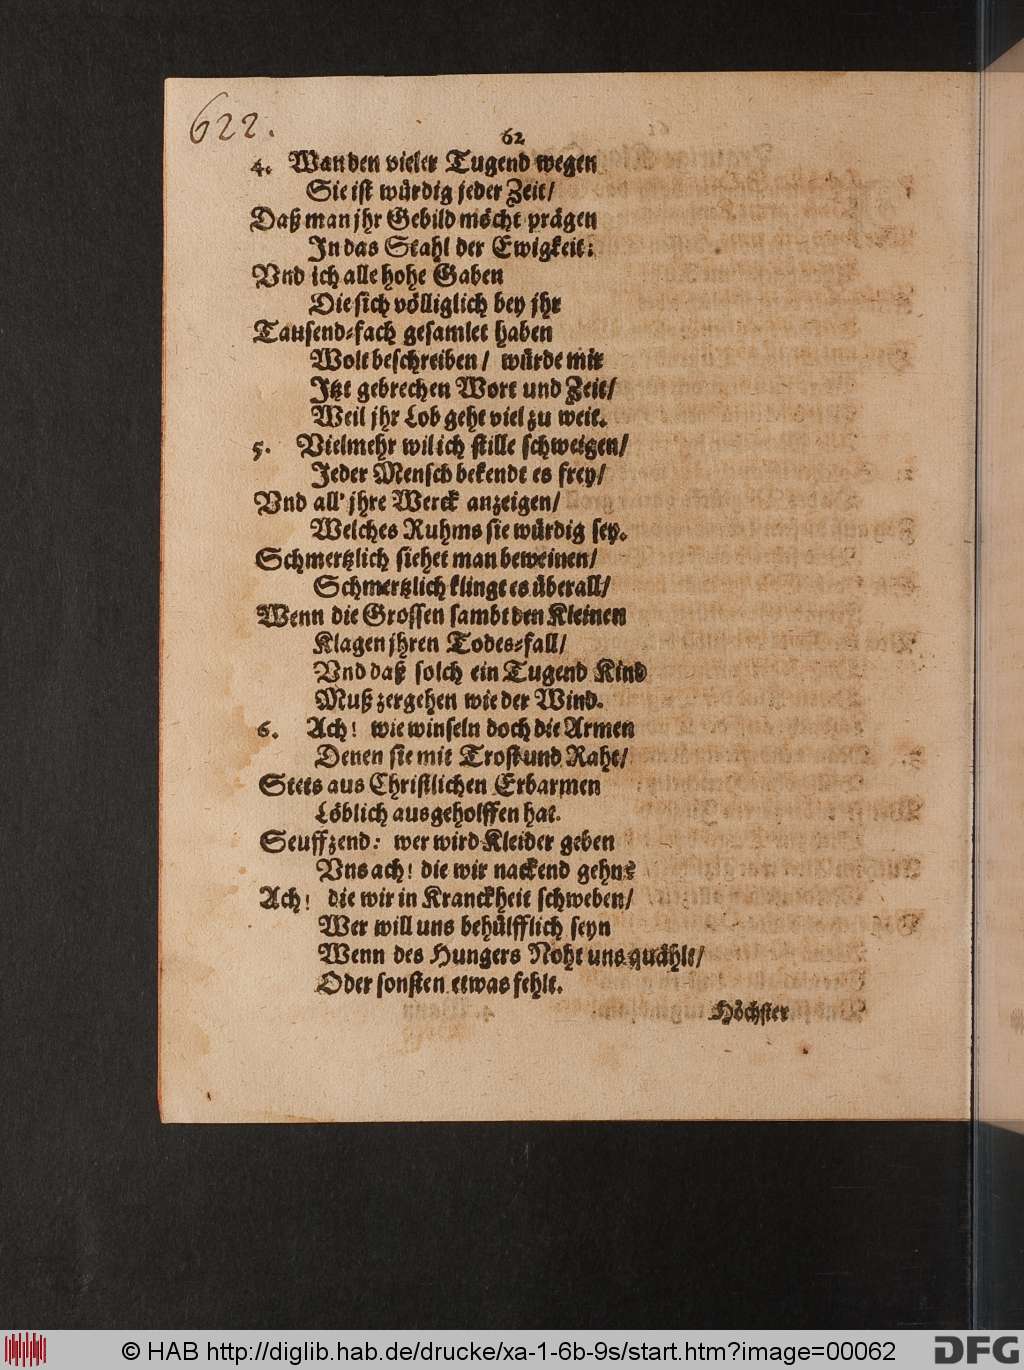 622.
62
4. Wan den vieler Tugend wegen
Sie ist würdig jeder Zeit/
Daß man jhr Gebild möcht prägen
In das Stahl der Ewigkeit:
Vnd ich alle hohe Gaben
Die sich völliglich bey jhr
Tausend-fach gesamlet haben
Wolt beschreiben/ würde mir
Jtzt gebrechen Wort und Zeit/
Weil jhr Lob geht viel zu weit.
5. Vielmehr wil ich stille schweigen/
Jeder Mensch bekendt es frey/
Vnd all' jhre Werck anzeigen/
Welches Ruhms sie würdig sey.
Schmertzlich siehet man beweinen/
Schmertzlich klingt es überall/
Wenn die Grossen sambt den Kleinen
Klagen jhren Todes-fall/
Vnd daß solch ein Tugend Kind
Muß zergehen wie der Wind.
6. Ach! wie winseln doch die Armen
Denen sie mit Trost und Raht/
Stets aus Christlichen Erbarmen
Löblich ausgeholffen hat.
Seuffzend: wer wird Kleider geben
Vns ach! die wir nackend gehn?
Ach! die wir in Kranckheit schweben/
Wer will uns behülfflich seyn
Wenn des Hungers Noht uns quählt/
Oder sonsten etwas fehlt.
Höchster
© HAB http://diglib.hab.de/drucke/xa-1-6b-9s/start.htm?image=00062
DFG